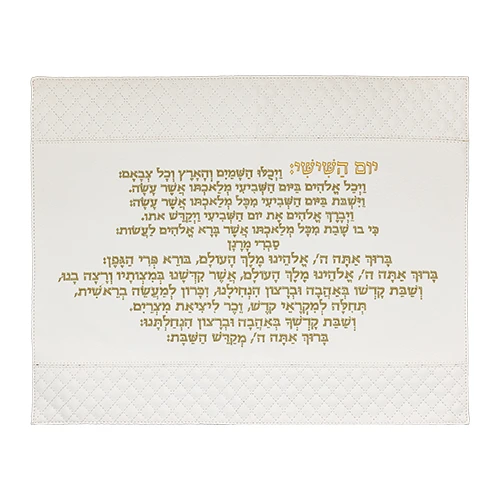 יוֹם הַשִּׁישִּׁי: וַיְכֻלּוּ הַשָּׁמַיִם וְהָאָרֶץ וְכָל צְבָאָם:
וַיְכַל אֱלֹהִים בַּיּוֹם הַשְּׁבִיעִי מְלַאכְתּוֹ אֲשֶׁר עָשָׂה.
וַיִּשְׁבֹּת בַּיּוֹם הַשְּׁבִיעִי מִכָּל מְלַאכְתּוֹ אֲשֶׁר עָשָׂה:
וַיְבָרֶךְ אֱלֹהִים אֶת יוֹם הַשְּׁבִיעִי וַיְקַדֵּשׁ אֹתוֹ.
כִּי בוֹ שָׁבַת מִכָּל מְלַאכְתּוֹ אֲשֶׁר בָּרָא אֱלֹהִים לַעֲשׂוֹת:
סַבְרִי מָרָנָן
בָּרוּךְ אַתָּה ה', אֱלֹהֵינוּ מֶלֶךְ הָעוֹלָם, בּוֹרֵא פְּרִי הַגֶּפֶן:
בָּרוּךְ אַתָּה ה', אֱלֹהֵינוּ מֶלֶךְ הָעוֹלָם, אֲשֶׁר קִדְּשָׁנוּ בְּמִצְוֹתָיו וְרָצָה בָנוּ,
וְשַׁבַּת קָדְשׁוֹ בְּאַהֲבָה וּבְרָצוֹן הִנְחִילָנוּ, זִכָּרוֹן לְמַעֲשֵׂה בְרֵאשִׁית,
תְּחִלָּה לְמִקְרָאֵי קֹדֶשׁ, זֵכֶר לִיצִיאַת מִצְרַיִם.
וְשַׁבַּת קָדְשְׁךָ בְּאַהֲבָה וּבְרָצוֹן הִנְחַלְתָּנוּ:
בָּרוּךְ אַתָּה ה', מְקַדֵּשׁ הַשַּׁבָּת: